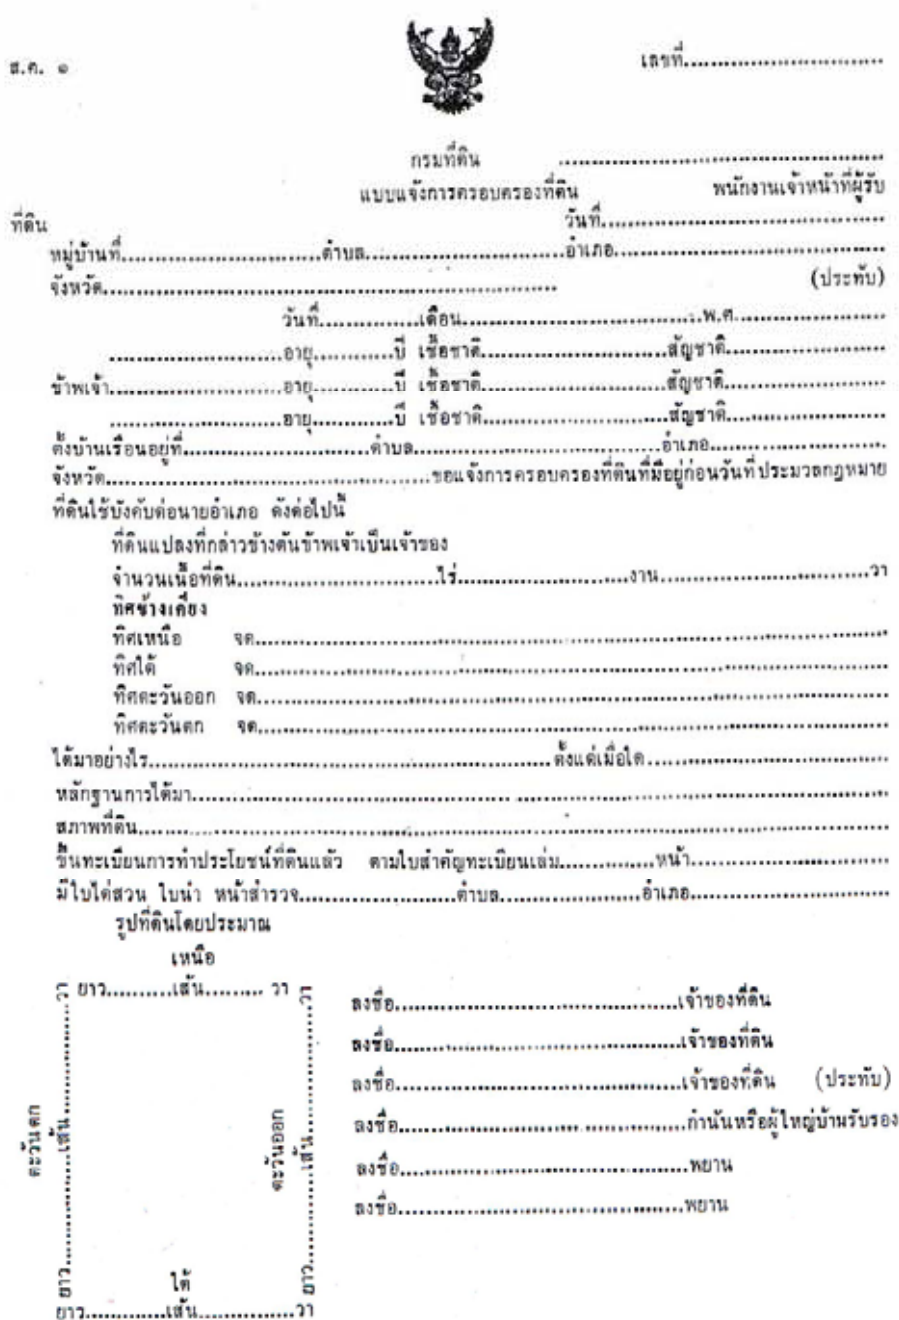 ส.ค. ๑
เลขที่..............................
กรมที่ดิน ..................................................
แบบแจ้งการครอบครองที่ดิน พนักงานเจ้าหน้าที่ผู้รับ
ที่ดิน วันที่..............................
หมู่บ้านที่..............................ตำบล..............................อำเภอ..............................
จังหวัด.................................................................. (ประทับ)
วันที่...............เดือน....................................พ.ศ.......................
..........................อายุ............ปี เชื้อชาติ............................สัญชาติ........................
ข้าพเจ้า..........................อายุ............ปี เชื้อชาติ............................สัญชาติ........................
..........................อายุ............ปี เชื้อชาติ............................สัญชาติ........................
ตั้งบ้านเรือนอยู่ที่............................ตำบล.....................................อำเภอ..........................
จังหวัด................................................ขอแจ้งการครอบครองที่ดินที่มีอยู่ก่อนวันที่ประมวลกฎหมาย
ที่ดินใช้บังคับต่อนายอำเภอ ดังต่อไปนี้
ที่ดินแปลงที่กล่าวข้างต้นข้าพเจ้าเป็นเจ้าของ
จำนวนเนื้อที่ดิน..............................ไร่..........................งาน................................วา
ทิศข้างเคียง
ทิศเหนือ จด................................................................................
ทิศใต้ จด................................................................................
ทิศตะวันออก จด................................................................................
ทิศตะวันตก จด................................................................................
ได้มาอย่างไร............................................................ตั้งแต่เมื่อใด....................................
หลักฐานการได้มา..........................................................................................
สภาพที่ดิน..................................................................................................
ขึ้นทะเบียนการทำประโยชน์ที่ดินแล้ว ตามใบสำคัญทะเบียนเล่ม..............หน้า..............................
มีใบไต่สวน ใบนำ หน้าสำรวจ........................ตำบล......................อำเภอ..............................
รูปที่ดินโดยประมาณ
เหนือ
ยาว..........เส้น......... วา
ตะวันตก
ยาว...............เส้น...............วา
ตะวันออก
ยาว...............เส้น...............วา
ใต้
ยาว.............เส้น...............วา
ลงชื่อ............................................เจ้าของที่ดิน
ลงชื่อ............................................เจ้าของที่ดิน
ลงชื่อ............................................เจ้าของที่ดิน (ประทับ)
ลงชื่อ............................................กำนันหรือผู้ใหญ่บ้านรับรอง
ลงชื่อ............................................พยาน
ลงชื่อ............................................พยาน